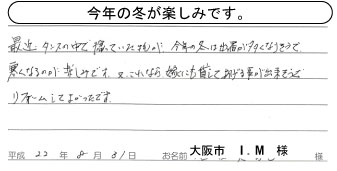 今年の冬が楽しみです。
最近タンスの中で撮っていたものが、今年の冬は出番が多くなりそうで
寒くなるのが楽しみです。又、これなら嫁にも貸してあげる事が出来そうで
リフォームしてよかったです。
平成 22 年 8 月 31 日 お名前 大阪市 I.M 様 様